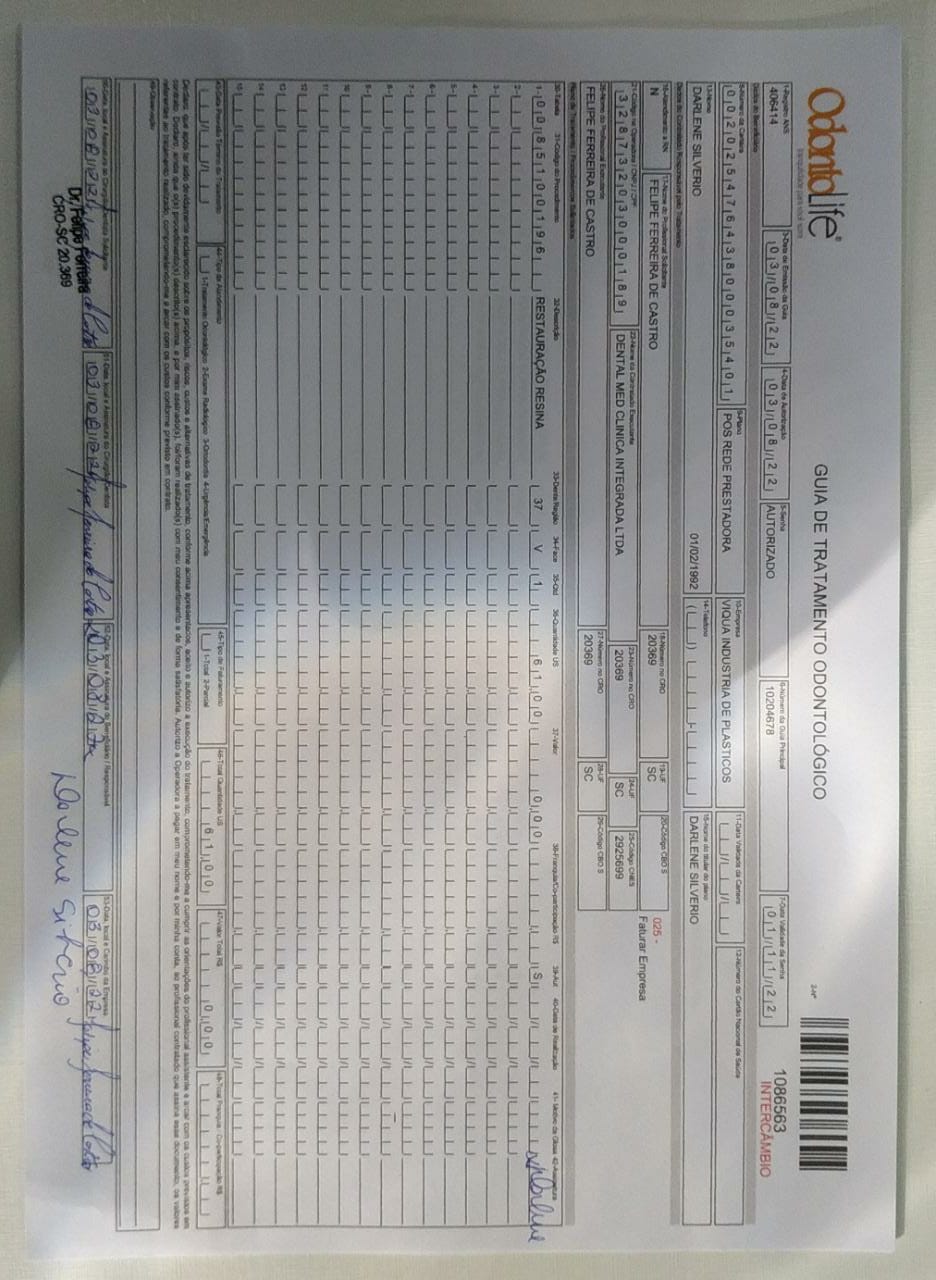 OdontoLife®
tranquilidade para você sorrir
GUIA DE TRATAMENTO ODONTOLÓGICO
2-Nº
1086563
INTERCÂMBIO
1-Registro ANS
406414
3-Data de Emissão da Guia
03/08/22
4-Data de Autorização
03/08/22
5-Senha
AUTORIZADO
6-Número da Guia Principal
10204678
7-Data Validade da Senha
01/11/22
Dados do Beneficiário
8-Número da Carteira
00202547643800035401
9-Plano
POS REDE PRESTADORA
10-Empresa
VIQUA INDUSTRIA DE PLASTICOS
11-Data Validade da Carteira
12-Número do Cartão Nacional de Saúde
13-Nome
DARLENE SILVERIO
01/02/1992
14-Telefone
15-Nome do titular do plano
DARLENE SILVERIO
Dados do Contratado Responsável pelo Tratamento
16-Atendimento a RN
N
17-Nome do Profissional Solicitante
FELIPE FERREIRA DE CASTRO
18-Número no CRO
20369
19-UF
SC
20-Código CBO S
025 -
Faturar Empresa
21-Código na Operadora / CNPJ / CPF
32873203000189
22-Nome do Contratado Executante
DENTAL MED CLINICA INTEGRADA LTDA
23-Número no CRO
20369
24-UF
SC
25-Código CNES
2925699
26-Nome do Profissional Executante
FELIPE FERREIRA DE CASTRO
27-Número no CRO
20369
28-UF
SC
29-Código CBO S
Plano de Tratamento / Procedimentos Solicitados
30-Tabela 31-Código do Procedimento 32-Descrição 33-Dente/Região 34-Face 35-Qtd 36-Quantidade US 37-Valor 38-Franquia/Co-participação R$ 39-Aut 40-Data de Realização 41- Motivo da Glosa 42-Assinatura
1- 00 85100196 RESTAURAÇÃO RESINA 37 V 1 61,00 0,00 S
2-
3-
4-
5-
6-
7-
8-
9-
10-
11-
12-
13-
14-
15-
43-Data Previsão Término do Tratamento
44-Tipo de Atendimento
1-Tratamento Odontológico 2-Exame Radiológico 3-Ortodontia 4-Urgência/Emergência
45-Tipo de Faturamento
1-Total 2-Parcial
46-Total Quantidade US
61,00
47-Valor Total R$
0,00
48-Total Franquia - Co-participação R$
Declaro, que após ter sido devidamente esclarecido sobre os propósitos, riscos, custos e alternativas de tratamento, conforme acima apresentados, aceito e autorizo a execução do tratamento, comprometendo-me a cumprir as orientações do profissional assistente e arcar com os custos previstos em
contrato. Declaro, ainda que o(s) procedimento(s) descrito(s) acima, e por mim assinado(s), foi/foram realizado(s) com meu consentimento e de forma satisfatória. Autorizo a Operadora a pagar em meu nome e por minha conta, ao profissional contratado que assina esse documento, os valores
referentes ao tratamento realizado, comprometendo-me a arcar com os custos conforme previsto em contrato.
49-Observação
50-Data, local e Assinatura do Cirurgião-Dentista Solicitante
03/08/22
51-Data, local e Assinatura do Cirurgião-Dentista
03/08/22 Felipe Ferreira de Castro
52-Data, local e Assinatura do Beneficiário / Responsável
03/08/22
53-Data, local e Carimbo da Empresa
03/08/22 Felipe Ferreira de Castro
Dr. Felipe Ferreira
CRO-SC 20.369
Darlene Silverio